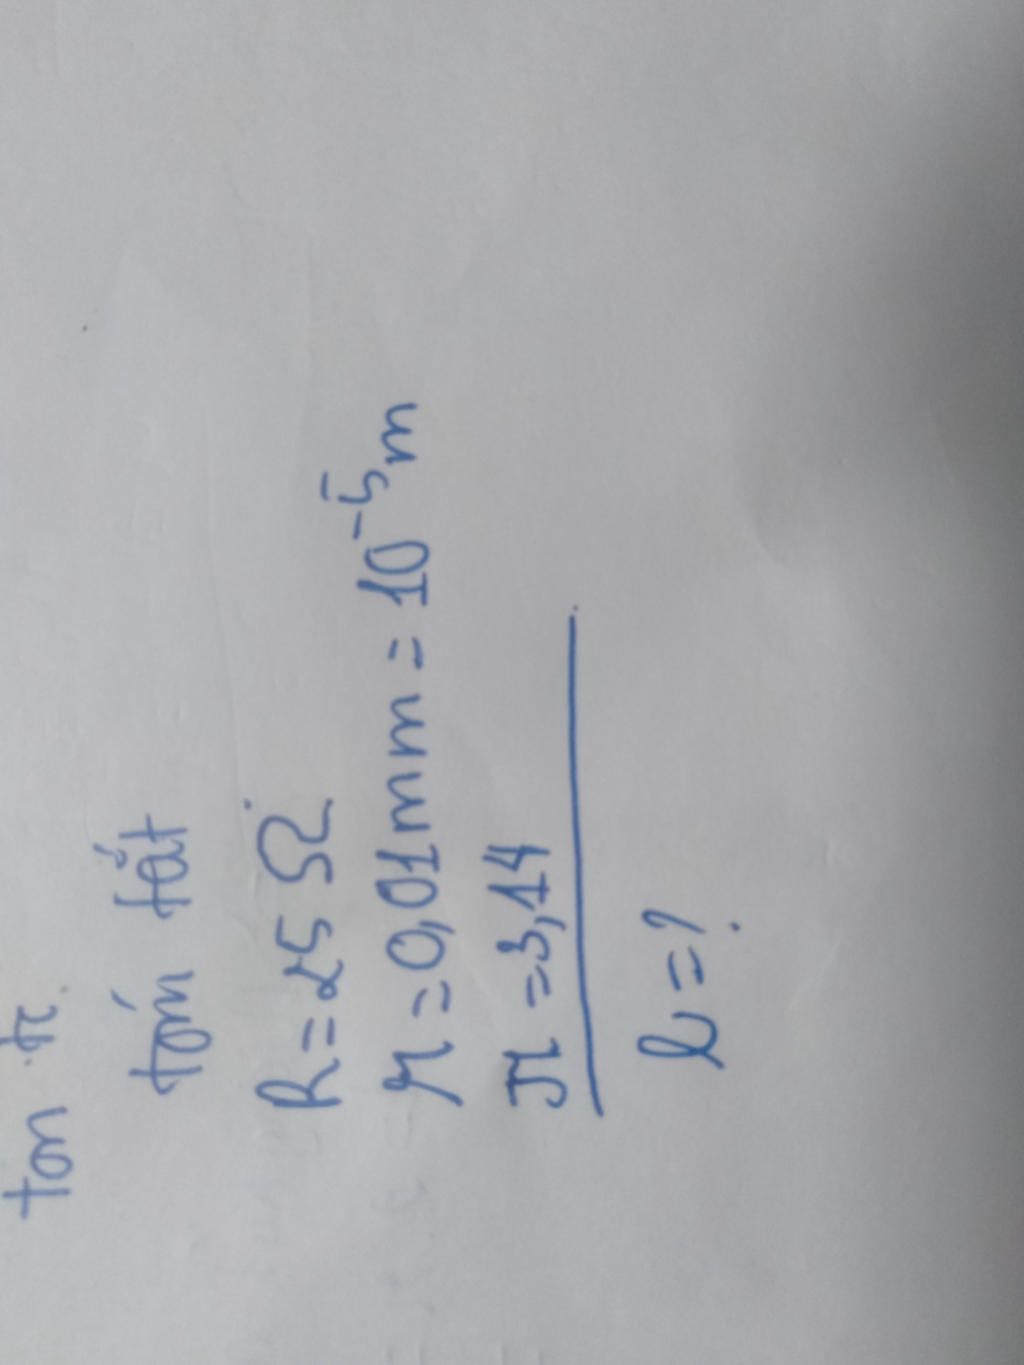 tóm tắt
R = 25 Ω
r = 0,01mm = 10⁻⁵ m
π = 3,14
l = ?